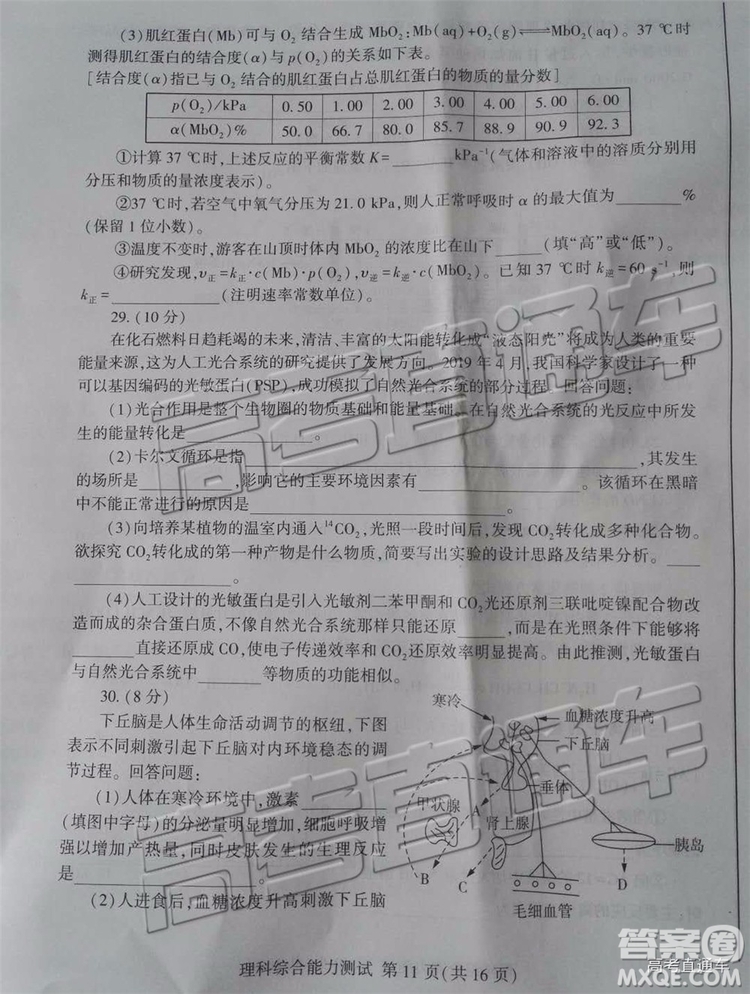 (3)肌红蛋白(Mb)可与 O₂ 结合生成 MbO₂:Mb(aq)+O₂(g)⇌MbO₂(aq)。37 ℃时
测得肌红蛋白的结合度(α)与 p(O₂)的关系如下表。
[结合度(α)指已与 O₂ 结合的肌红蛋白占总肌红蛋白的物质的量分数]
p(O₂)/kPa 0.50 1.00 2.00 3.00 4.00 5.00 6.00
α(MbO₂)% 50.0 66.7 80.0 85.7 88.9 90.9 92.3
①计算 37 ℃时,上述反应的平衡常数 K=________kPa⁻¹(气体和溶液中的溶质分别用
分压和物质的量浓度表示)。
②37 ℃时,若空气中氧气分压为 21.0 kPa,则人正常呼吸时 α 的最大值为________%
(保留 1 位小数)。
③温度不变时,游客在山顶时体内 MbO₂ 的浓度比在山下______(填“高”或“低”)。
④研究发现,v正=k正·c(Mb)·p(O₂),v逆=k逆·c(MbO₂)。已知 37 ℃时 k逆=60 s⁻¹,则
k正=__________(注明速率常数单位)。
29.(10 分)
在化石燃料日趋耗竭的未来,清洁、丰富的太阳能转化成“液态阳光”将成为人类的重要
能量来源,这为人工光合系统的研究提供了发展方向。2019 年 4 月,我国科学家设计了一种
可以基因编码的光敏蛋白(PSP),成功模拟了自然光合系统的部分过程。回答问题:
(1)光合作用是整个生物圈的物质基础和能量基础。在自然光合系统的光反应中所发
生的能量转化是____________。
(2)卡尔文循环是指____________________________________,其发生
的场所是________,影响它的主要环境因素有______________。该循环在黑暗
中不能正常进行的原因是________________________________。
(3)向培养某植物的温室内通入¹⁴CO₂,光照一段时间后,发现 CO₂转化成多种化合物。
欲探究 CO₂转化成的第一种产物是什么物质,简要写出实验的设计思路及结果分析。____
____________。
(4)人工设计的光敏蛋白是引入光敏剂二苯甲酮和 CO₂光还原剂三联吡啶镍配合物改
造而成的杂合蛋白质,不像自然光合系统那样只能还原______,而是在光照条件下能够将
________直接还原成 CO,使电子传递效率和 CO₂还原效率明显提高。由此推测,光敏蛋白
与自然光合系统中________等物质的功能相似。
30.(8 分)
下丘脑是人体生命活动调节的枢纽,下图
表示不同刺激引起下丘脑对内环境稳态的调
节过程。回答问题:
(1)人体在寒冷环境中,激素____________
(填图中字母)的分泌量明显增加,细胞呼吸增
强以增加产热量,同时皮肤发生的生理反应
是________________________。
(2)人进食后,血糖浓度升高刺激下丘脑
寒冷
血糖浓度升高
下丘脑
垂体
甲状腺
A
肾上腺
胰岛
B
C
D
毛细血管
理科综合能力测试 第 11 页(共 16 页)
高考直通车
高考直通车
答案圈
高考直通车
MXQE.COM